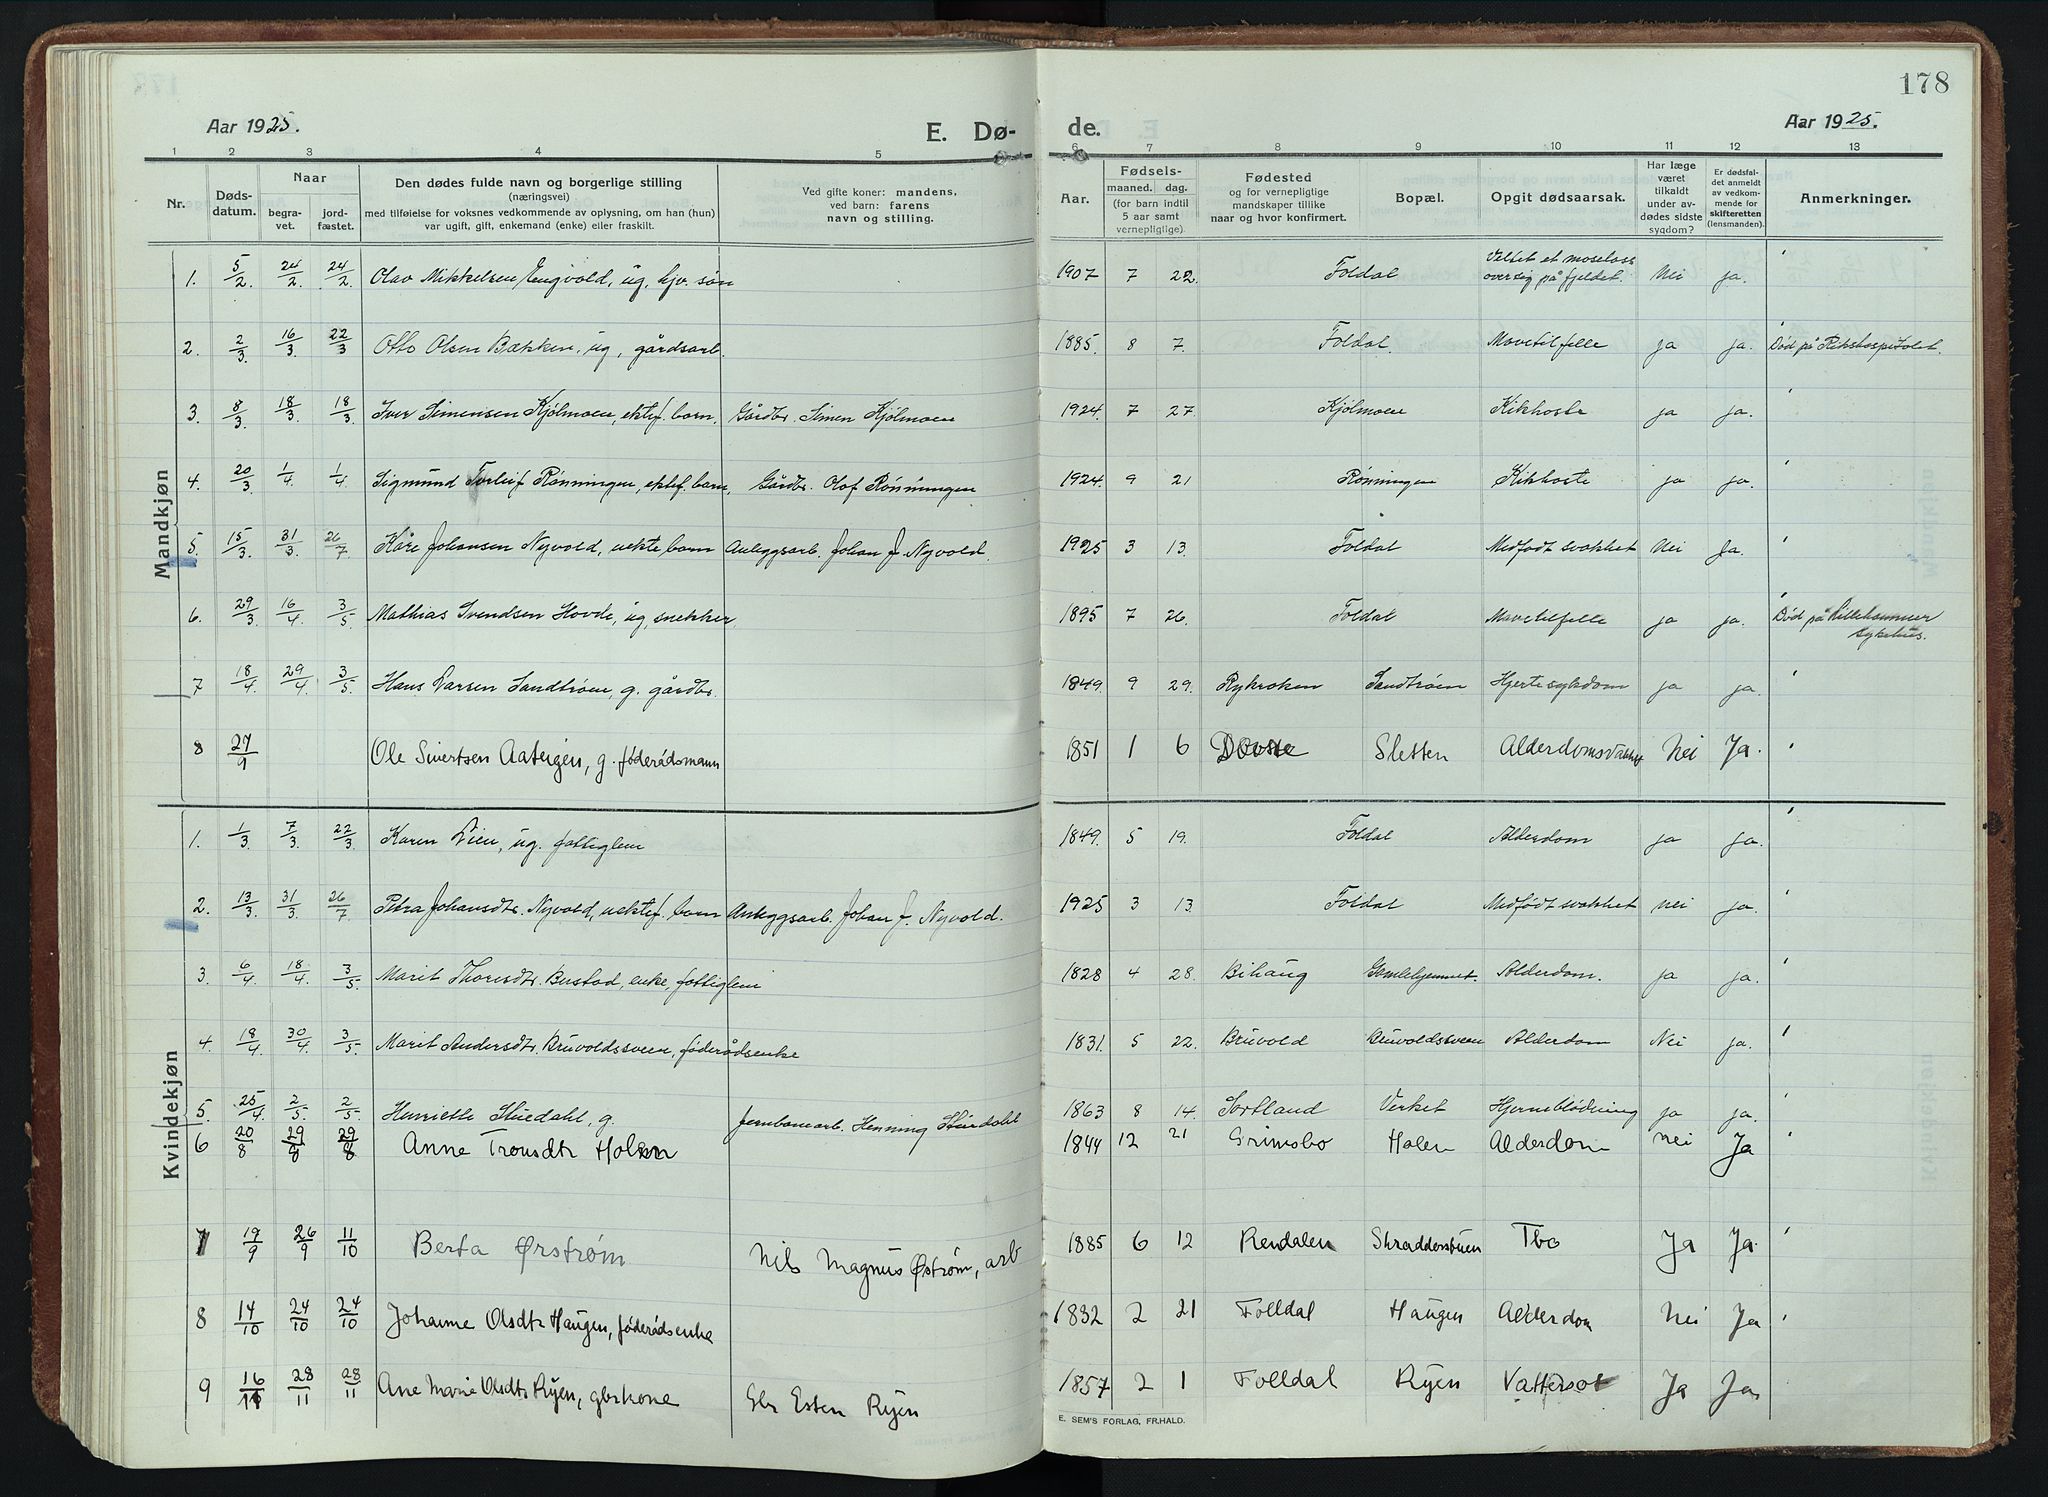 178
Aar 1925.
E. Dø-
de.
Aar 1925.
1 2 3 4 5 6 7 8 9 10 11 12 13
Nr.
Dødsdatum.
Naar
begravet.
jordfæstet.
Den dødes fulde navn og borgerlige stilling
(næringsvei)
med tilføielse for voksnes vedkommende av oplysning, om han (hun)
var ugift, gift, enkemand (enke) eller fraskilt.
Ved gifte koner: mandens,
ved barn: farens
navn og stilling.
Aar.
Fødsels-
maaned. dag.
(for barn indtil
5 aar samt
vernepligtige).
Fødested
og for vernepligtige
mandskaper tillike
naar og hvor konfirmert.
Bopæl.
Opgit dødsaarsak.
Har læge
været
tilkaldt
under av-
dødes sidste
sygdom?
Er dødsfal-
det anmeldt
av vedkom-
mende for
skifteretten
(lensmanden).
Anmerkninger.
Mandkjøn
1. 5/2 24/2 24/2 Olav Mikkelsen Engvold, ug, hjv. søn 1907 7 22. Foldal et moselass over sig på fjeldet. Nei ja.
2. 2/3 16/3 22/3 Otto Olsen Bækken, ug, gårdsarb. 1885. 8 7. Foldal. Mavetilfelle ja ja. Død på Rikshospitalet.
3. 8/3 18/3 18/3 Iver Simensen Kjølmoen, ektef. barn, Gårdbr. Simen Kjølmoen 1924. 7 27. Kjølmoen Kikhoste ja ja.
4. 20/3 1/4 1/4 Sigmund Torleif Rønningen, ektef. barn, Gårdbr. Olof Rønningen 1924. 9 21 Rønningen Kikhoste ja ja.
5. 15/3 31/3 26/7 Kåre Johansen Nyvold, uekte barn Anleggsarb. Johan J. Nyvold. 1925 3 13. Foldal Medfødt svakhet Nei Ja.
6. 29/3 16/4 3/5 Mathias Svendsen Hovde, ug, snekker. 1895 7 26. Foldal Mavetilfelle ja ja. Død på Lillehammer sykehus.
7 18/4 29/4 3/5 Hans Larsen Sandtrøen, g. gårdbr. 1849. 9 29. Rykroken Sandtrøen Hjertesykdom ja ja.
8 27/9 Ole Sivertsen Aateigen, g. føderådsmann 1851 1 6 Dovre Sletten Alderdomsvakhet Nei Ja.
Kvindekjøn
1. 1/3 7/3 22/3 Karen Lien, ug. fattiglem 1849. 5 19. Foldal Alderdom ja ja.
2. 13/3 31/3 26/7 Petra Johansdtr. Nyvold, uektef. barn Anleggsarb. Johan J. Nyvold. 1925 3 13. Foldal Medfødt svakhet nei ja.
3. 6/4 18/4 3/5. Marit Thoresdtr. Bustad, enke, fattiglem 1828 4 28. Bihaug Gamlehjemmet. Alderdom. ja ja.
4. 18/4 30/4 3/5. Marit Andersdtr. Bruvoldssveen, føderådsenke 1831. 5 22. Bruvold Bruvoldssveen Alderdom Nei ja.
5 25/4 2/5. 2/5 Henriette Stuedahl, g. Jernbanearb. Henning Stuedahl 1863 8 14. Sortland Verket Hjerneblødning ja ja.
6 20/8 29/8 29/8 Anne Trondsdtr Holen 1844 12 21 Grimsbo Holen Alderdom nei Ja
7 19/9 26/9 11/10 Berta Ørstrøm Nils Magnus Østrøm, arb 1885 6 12 Rendalen Skradderstuen Tbc Ja Ja.
8 14/10 24/10 24/10 Johanne Olsdtr Haugen, føderådsenke 1832 2 21 Folldal Haugen Alderdom Nei Ja
9 16/11 28/11 28/11 Ane Marie Olsdtr Ryen, gbrkone Gbr Esten Ryen 1857 2 1 Folldal Ryen Vattersot Ja Ja
E. SEM'S FORLAG, FR.HALD.